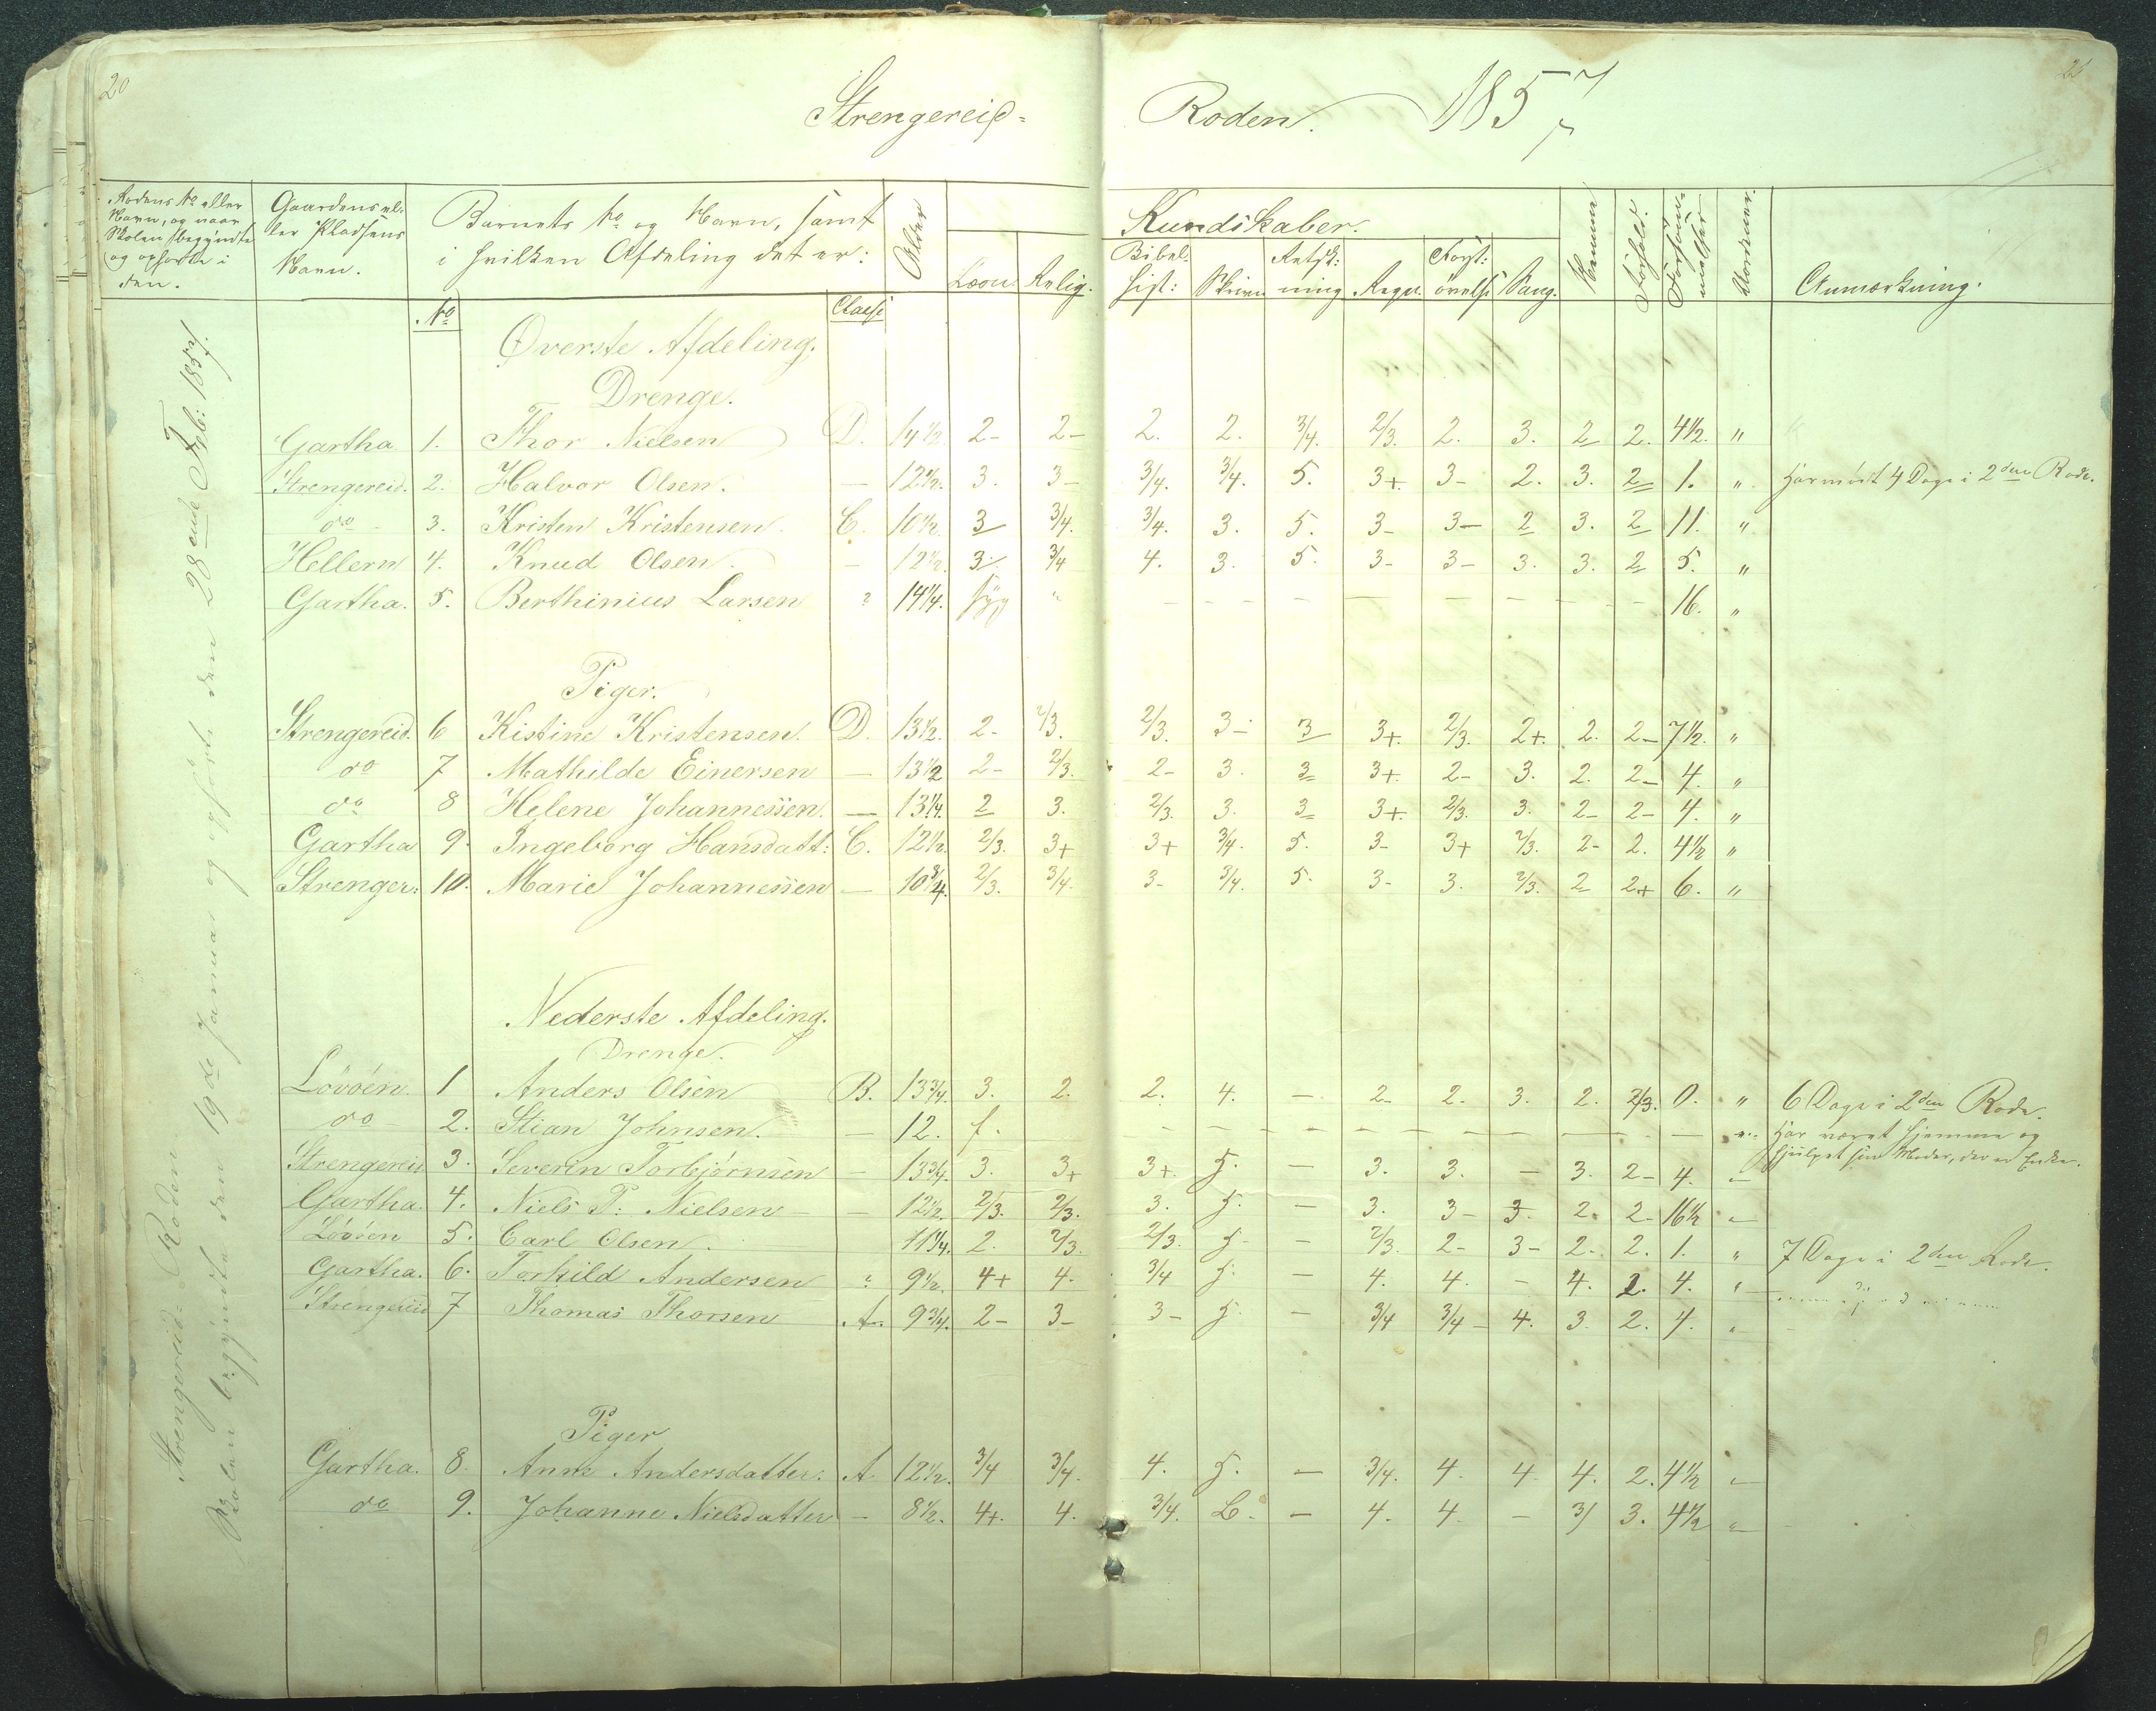 20
21
Strengereid= Roden. 1857
Rodens No eller Gaardens el- Barnets No og Navn, samt Alder Kundskaber. Evner Forhold. Forsømmelser Anmærkning.
Navn, og naar ler Pladsens i hvilken Afdeling det er: Læsn. Relig. Bibel- Retsk:
Skolen begyndte Navn. hist: Skrivn ning Regn. øvelse Sang.
og ophørte i
den.
Strengereid= Roden
Skolen begyndte den 19de Januar og ophørte den 28ende Feb: 1857.
No Classe
Øverste Afdeling.
Drenge.
Gartha. 1. Thor Nielsen D. 14 1/2 2- 2- 2. 2. 3/4. 2/3. 2. 3. 2 2. 4 1/2. "
Strengereid. 2. Halvor Olsen. — 12 1/2. 3. 3- 3/4. 3/4. 5. 3+ 3- 2. 3. 2 1. " Har mødt 4 Dage i 2den Rode.
do 3. Kristen Kristensen. C. 10 1/2. 3 3/4. 3/4. 3. 5. 3- 3- 2 3. 2 11. "
Hellern 4. Knud Olsen. — 12 1/2. 3. 3/4 4. 3. 5. 3- 3- 3. 3. 2 5. "
Gartha. 5. Berthinius Larsen ? 14 1/4. syg " — — — — — — — — 16. "
Piger.
Strengereid. 6 Kistine Kristensen. D. 13 1/2. 2- 2/3. 2/3. 3- 3 3+. 2/3. 2+. 2. 2- 7 1/2. "
do 7 Mathilde Einersen — 13 1/2 2- 2/3. 2- 3. 3 3+. 2- 3. 2. 2- 4. "
do 8 Helene Johannessen. — 13 1/4. 2 3. 2/3. 3. 3 3+. 2/3. 3. 2- 2- 4. "
Gartha 9. Ingeborg Hansdatt: C. 12 1/2. 2/3. 3+ 3+ 3/4. 5. 3- 3+ 2/3. 2- 2. 4 1/2 "
Strenger: 10. Marie Johannessen — 10 3/4. 2/3. 3/4. 3- 3/4. 5. 3- 3. 2/3. 2 2+ 6. "
Nederste Afdeling.
Drenge.
Lövöen. 1 Anders Olsen B. 13 3/4. 3. 2. 2. 4. — 2. 2. 3. 2. 2/3. 0. " 6 Dage i 2den Rode.
do 2. Stian Johnsen. — 12. f. — — — — — — — — — " Har været hjemme og
hjulpet sin Moder, der er Enke.
Strengereid 3. Severin Torbjørnsen — 13 3/4. 3. 3+ 3+. 5. — 3. 3. — 3. 2- 4. "
Gartha. 4. Niels P: Nielsen — 12 1/2. 2/3. 2/3. 3. 5. — 3. 3- 3. 2. 2- 16 1/2 "
Lövöen 5. Carl Olsen. 11 3/4. 2. 2/3. 2/3. 5- — 2/3. 2- 3- 2- 2. 1. " 7 Dage i 2den Rode.
Gartha. 6. Torkild Andersen ? 9 1/2. 4+ 4. 3/4 5. — 4. 4. — 4. 2. 4. "
Strengereid 7 Thomas Thorsen A. 9 3/4. 2- 3- 3- 5. — 3/4 3/4- 4. 3. 2. 4. "
Piger
Gartha. 8. Anne Andersdatter. A. 12 1/2. 3/4 3/4. 4. 5. — 3/4. 4. 4. 4. 2. 4 1/2 "
do 9. Johanne Nielsdatter — 8 1/2. 4+. 4. 3/4. L. — 4. 4. — 3/ 3. 4 1/2 "